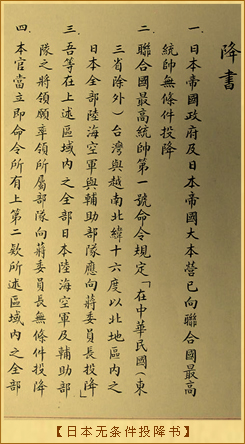 降書
一、日本帝國政府及日本帝國大本營已向聯合國最高
統帥無條件投降
二、聯合國最高統帥第一號命令規定「在中華民國(東
三省除外)台灣與越南北緯十六度以北地區内之
日本全部陸海空軍與輔助部隊應向蔣委員長投降」
三、吾等在上述區域内之全部日本陸海空軍及輔助部
隊之將領願率領所屬部隊向蔣委員長無條件投降
四、本官當立即命令所有上第二欵所述區域内之全部
【日本无条件投降书】